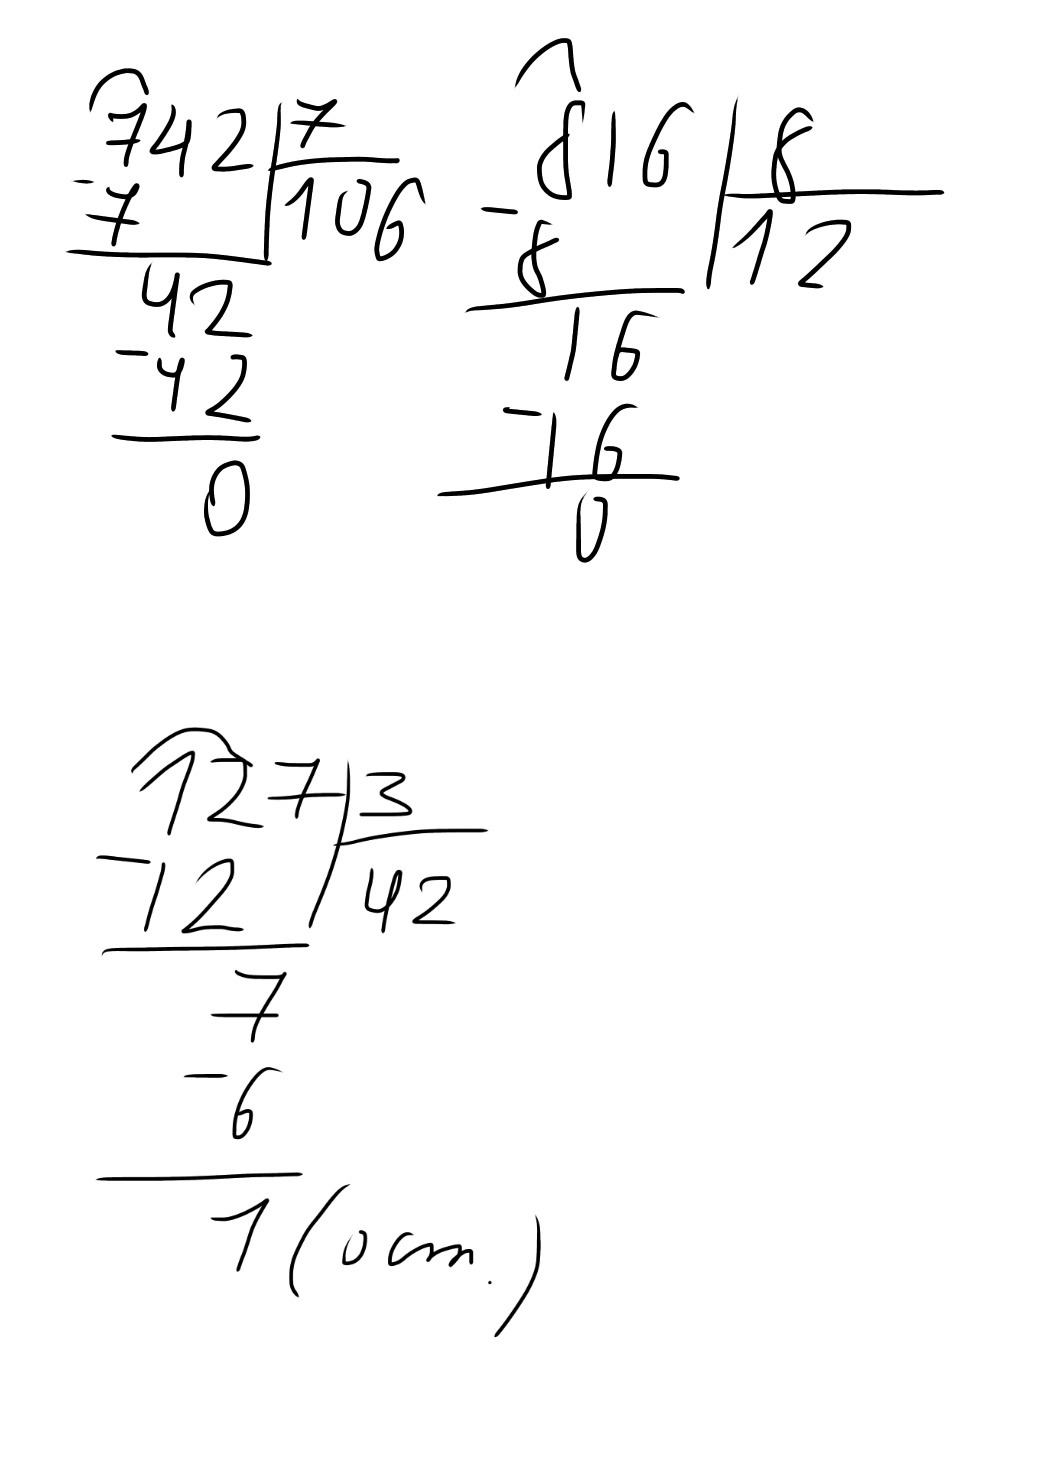 742 7
- 7 106
42
- 42
0
816 8
- 8 12
16
- 16
0
127 3
- 12 42
7
- 6
1 (ост.)